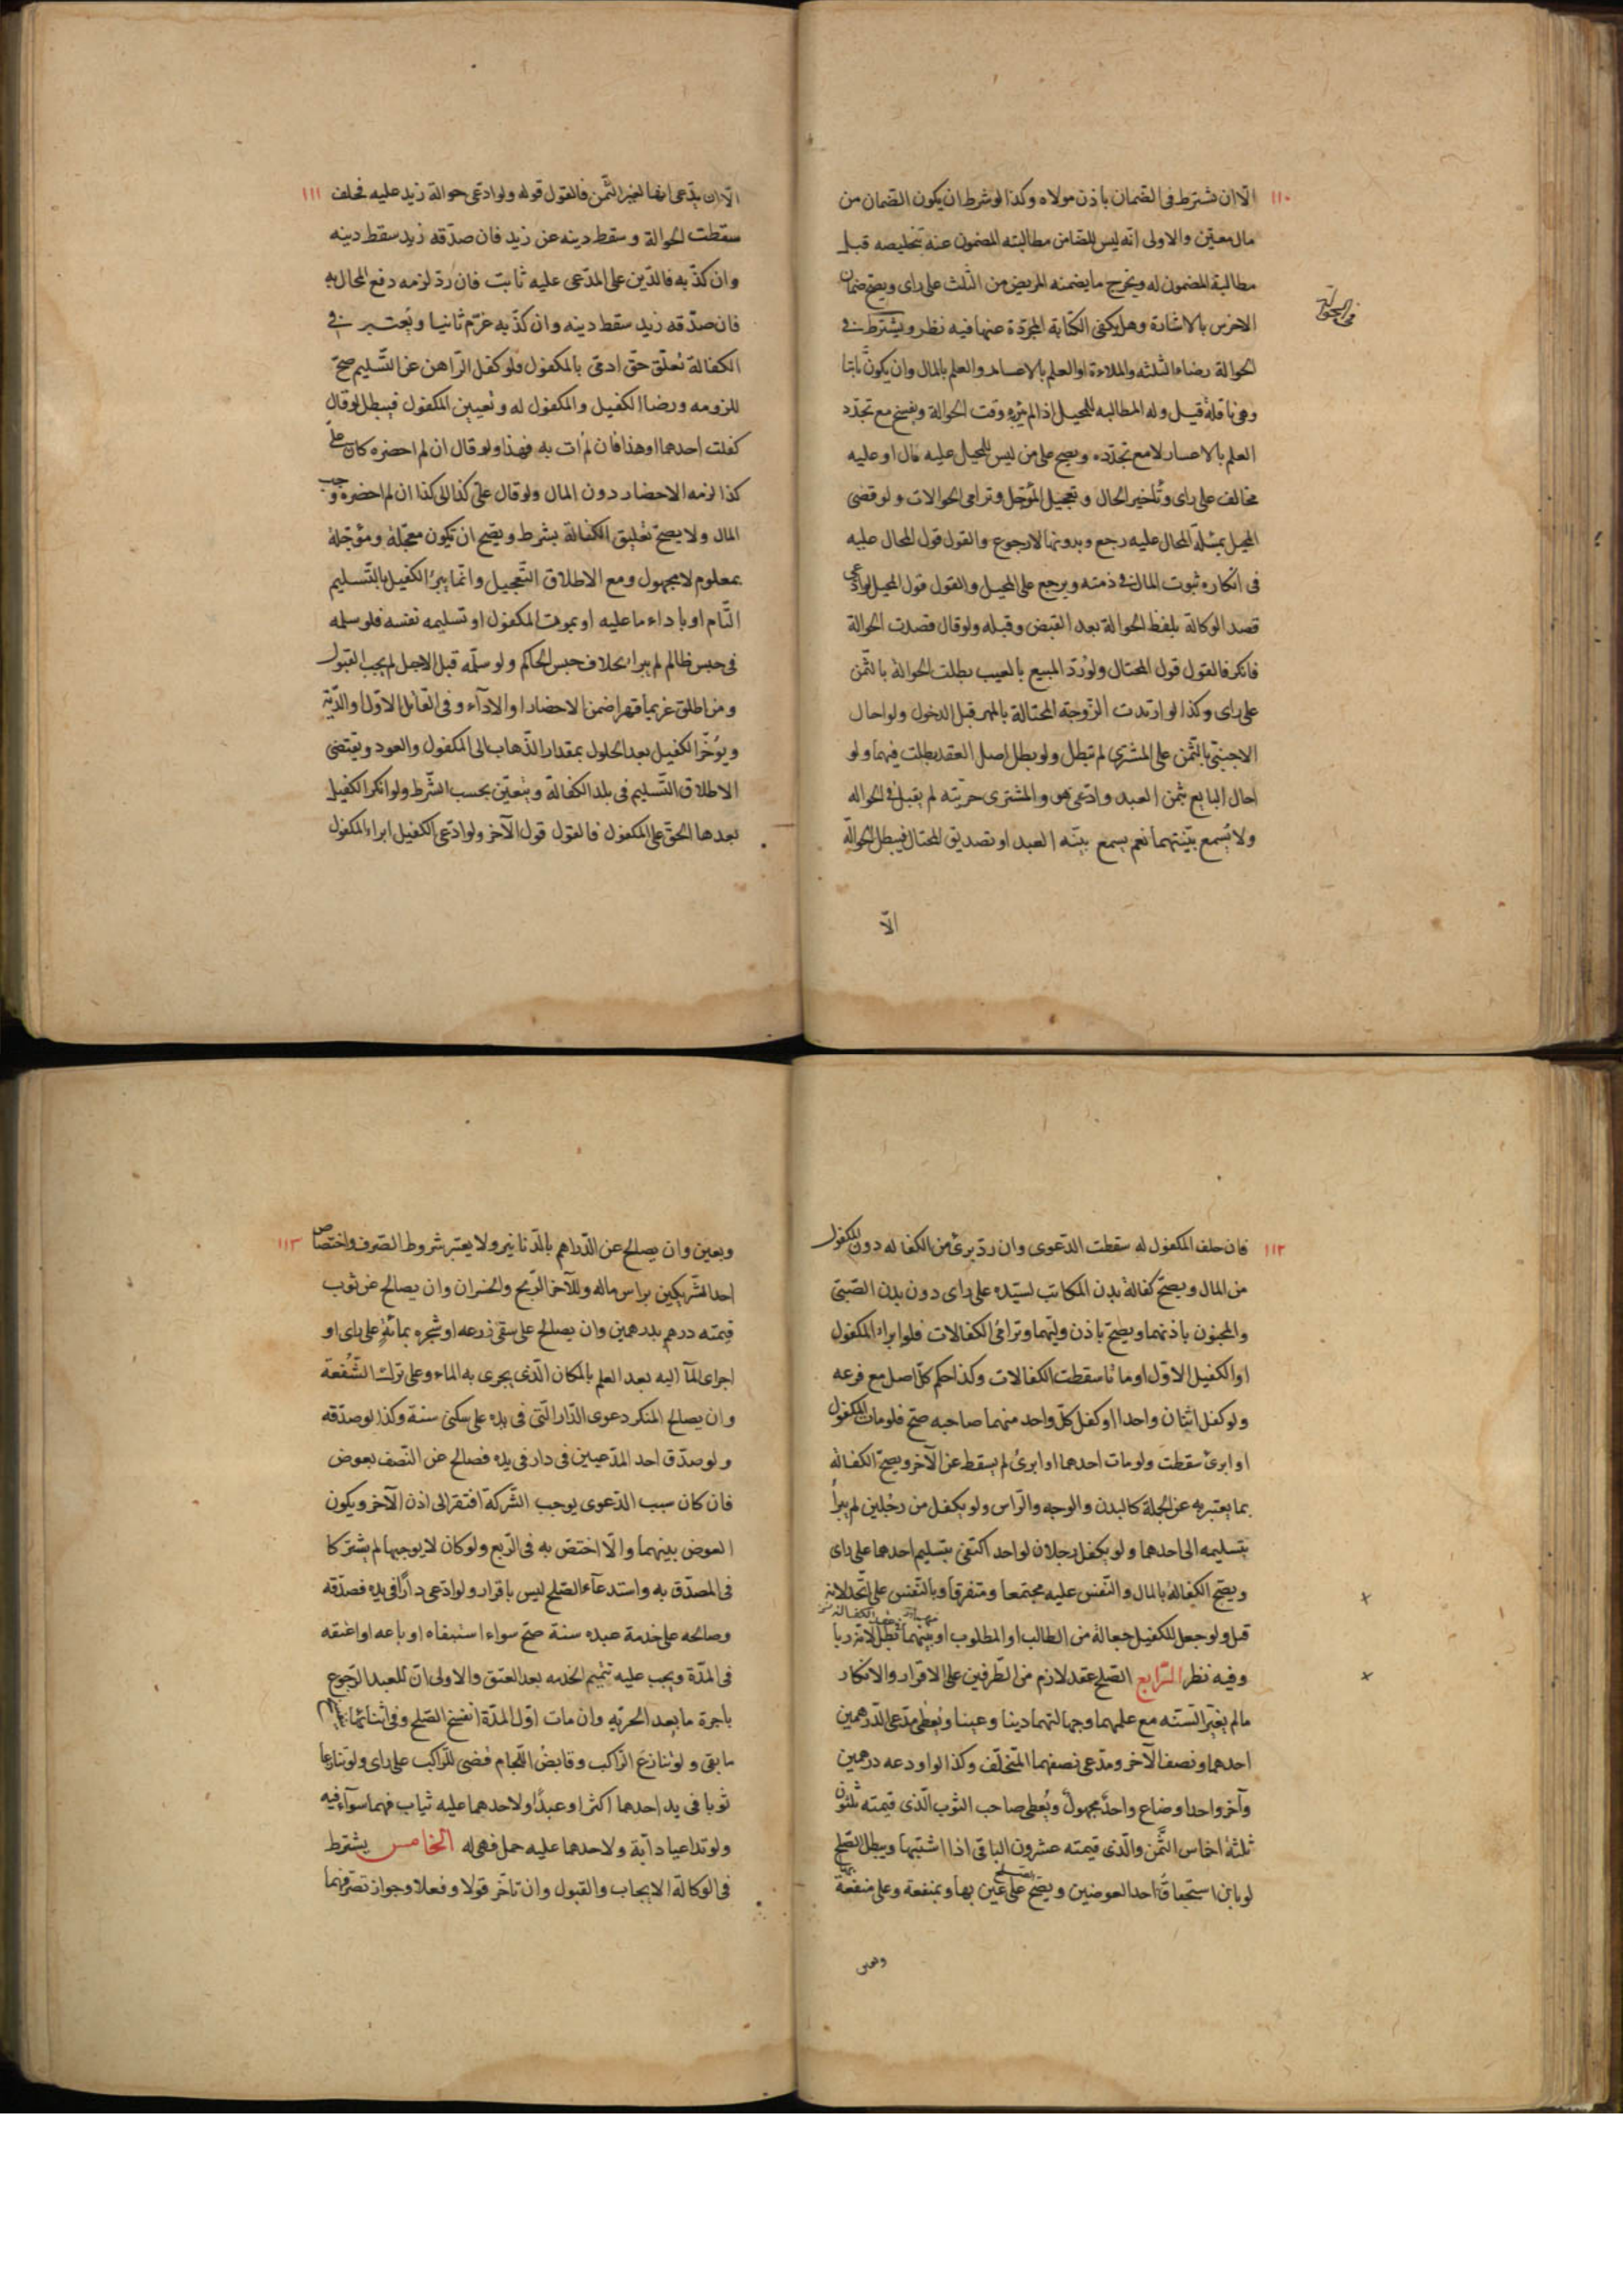 ١١٠
الّا ان نشترط فى الضمان باذن مولاه وكذا لو شرط ان يكون الضمان من
مال معيّن والاولى انّه ليس للضامن مطالبته المضمون عنه بتخليصه قبل
مطالبة المضمون له ويخرج ما يضمنه المريض من الثلث على راى ويصحّ ضمان
الاخرس بالاشارة وهل يكفى الكتابة المجرّدة عنها فيه نظر ويشترط فى
فى الحوالة
الحوالة رضاء الثلثه والملاءة او العلم بالاعسار والعلم بالمال وان يكون ثابتا
وهى ناقلة قيل وله المطالبه للمحيل اذا لم يبره وقت الحوالة ويفسخ مع تجدّد
العلم بالاعسار لا مع تجدّده ويصح على من ليس للمحيل عليه مال او عليه
مخالف على راى وتاخير الحال وتعجيل المؤجّل وترامى الحوالات ولو قضى
المحيل بمسئلة المحال عليه رجع وبدونها لا رجوع والقول قول المحال عليه
فى انكاره ثبوت المال فى ذمته ويرجع على المحيل والقول قول المحيل لو ادّعى
قصد الوكالة بلفظ الحوالة بعد القبض وقبله ولو قال قصدت الحوالة
فانكر فالقول قول المحتال ولو ردّ المبيع بالعيب بطلت الحوالة بالثّمن
على راى وكذا لو ارتدت الزّوجة المحتالة بالمهر قبل الدخول ولو احال
الاجنبّى بالثّمن على المشترى لم تبطل ولو بطل اصل العقد بطلت فيهما ولو
احال البايع بثمن العبد وادّعى هو والمشترى حرّيته لم يقبل فى الحواله
ولا يسمع بيّنتهما نعم يسمع بيّنه العبد او تصديق المحتال فيبطل الحوالة
الّا
١١١
الّا ان يدّعى انها لغير الثّمن فالقول قوله ولو ادّعى حوالة زيد عليه فحلف
سقطت الحوالة وسقط دينه عن زيد فان صدّقه زيد سقط دينه
وان كذّبه فالدّين على المدّعى عليه ثابت فان ردّ لزمه دفع المحال به
فان صدّقه زيد سقط دينه وان كذّبه غرّم ثانيا ويعتبر فى
الكفالة تعلّق حقّ ادمّى بالمكفول فلو كفل الرّاهن عن التّسليم صحّ
للزومه ورضا الكفيل والمكفول له وتعيين المكفول فيبطل لو قال
كفلت احدهما او هذا فان لم ات به فهذا ولو قال ان لم احضره كان علىّ
كذا لزمه الاحضار دون المال ولو قال علىّ كذا الى كذا ان لم احضره وجب
المال ولا يصحّ تعليق الكفالة بشرط ويصّح ان تكون معجّلة ومؤجّلة
بمعلوم لا مجهول ومع الاطلاق التّعجيل وانّما يبرء الكفيل بالتّسليم
التّام او باداء ما عليه او بموت المكفول او تسليمه نفسه فلو سلمه
فى حبس ظالم لم يبرا بخلاف حبس الحاكم ولو سلّمه قبل الاجل لم يجب القبول
ومن اطلق غريما قهرا ضمن الاحضار او الاداء وفى القاتل الاوّل او الدّية
ويؤخّر الكفيل بعد الحلول بمقدار الذّهاب الى المكفول والعود ويقتضى
الاطلاق التّسليم فى بلد الكفالة ويتعيّن بحسب الشّرط ولو انكر الكفيل
بعدها الحقّ على المكفول فالقول قول الآخر ولو ادّعى الكفيل ابراء المكفول
١١٢
فان حلف المكفول له سقطت الدّعوى وان ردّ برئ من الكفاله دون المكفول
من المال ويصحّ كفالة بدن المكاتب لسيّده على راى دون بدن الصّبىّ
والمجنون باذنهما ويصّح باذن وليّهما وترامى الكفالات فلو ابراء المكفول
او الكفيل الاوّل او ماتا سقطت الكفالات وكذا حكم كلّ اصل مع فرعه
ولو كفل اثنان واحدا او كفل كلّ واحد منهما صاحبه صحّ فلو مات المكفول
او ابرئ سقطت ولو مات احدهما او ابرئ لم يسقط عن الآخر ويصحّ الكفالة
بما يعتبر به عن الجملة كالبدن والوجه والرّاس ولو تكفل من رجلين لم يبرأ
بتسليمه الى احدهما ولو تكفل رجلان لواحد اكتفى بتسليم احدهما على راى
ويصّح الكفالة بالمال والنّفس عليه مجتمعا ومتفرقا وبالنّفس على
قبل ولو جعل للكفيل جعالة من الطالب او المطلوب او بينهما بطل لانّه ربا
وفيه نظر الرّابع الصّلح عقد لازم من الطّرفين على الاقرار والانكار
مالم يغيّر السّنه مع علمهما وجهالتهما دينا وعينا ويعطى مدّعى الدّرهمين
احدهما ونصف الآخر ومدّعى نصفهما المتخلّف وكذا لو اودعه درهمين
وآخر واحدا وضاع واحد مجهول ويعطى صاحب الثوب الّذى قيمته ثلثون
ثلثة اخماس الثّمن والّذى قيمته عشرون الباقى اذا اشتبها ويبطل الصّلح
لو بان استحقاق احد العوضين ويصّح على عين بها وبمنفعة وعلى منفعة
وبعين
١١٣
وبعين وان يصالح عن الدّراهم بالدّنانير ولا يعتبر شروط الصّرف واختصاص
احد الشّريكين براس ماله وللآخر الرّبح والخسران وان يصالح عن ثوب
قيمته درهم بدرهمين وان يصالح على سقى زرعه او شجره بمائه على راى او
اجراى المآ اليه بعد العلم بالمكان الّذى يجرى به الماء وعلى ترك الشّفعة
وان يصالح المنكر دعوى الدّار الّتى فى يده على سكنى سنة وكذا لو صدّقه
ولو صدّق احد المدّعيين فى دار فى يده فصالح عن النّصف بعوض
فان كان سبب الدّعوى يوجب الشّركة افتقر الى اذن الآخر ويكون
العوض بينهما والّا اختصّ به فى الرّبع ولو كان لا يوجبها لم يشتركا
فى المصدّق به واستدعآء الصّلح ليس باقرار ولو ادّعى دارًا فى يده فصدّقه
وصالحه على خدمة عبده سنة صحّ سواء استبقاه او باعه او اعتقه
فى المدّة ويجب عليه تتميم الخدمه بعد العتق والاولى انّ للعبد الرّجوع
باجرة ما بعد الحريّه وان مات اوّل المدّة انفسخ الصّلح وفى اثنائها
ما بقى ولو تنازع الرّاكب وقابض اللّجام قضى للرّاكب على راى ولو تنازعا
ثوبا فى يد احدهما اكثر او عبدًا ولاحدهما عليه ثياب فهما سوآء فيه
ولو تداعيا دابّة ولاحدهما عليه حمل فهى له الخامس يشترط
فى الوكالة الايجاب والقبول وان تاخّر قولا وفعلا وجواز تصرّفهما